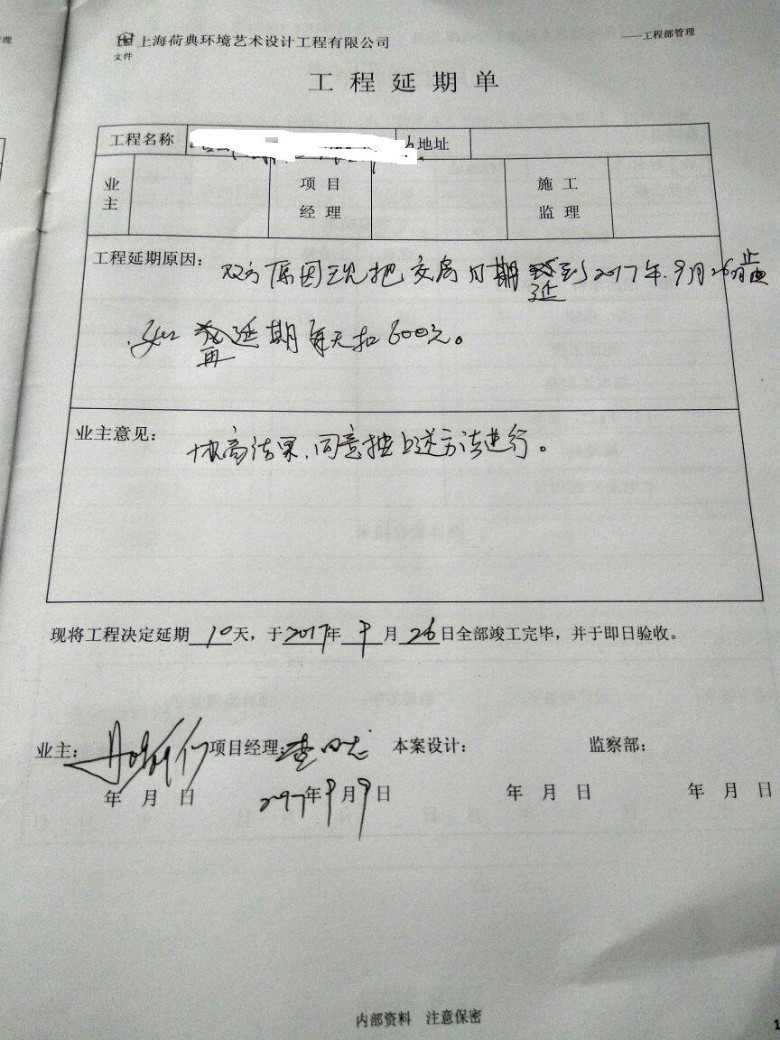 上海荷典环境艺术设计工程有限公司
文件
——工程部管理
工程延期单
工程名称 地址
业主 项目经理 施工监理
工程延期原因: 双方原因现把交房日期延到2017年9月26日止
如再延期每天扣600元。
业主意见: 协商结果,同意按上述方法进行。
现将工程决定延期10天,于2017年9月26日全部竣工完毕,并于即日验收。
业主: 项目经理: 本案设计: 监察部:
年 月 日 2017年9月9日 年 月 日 年 月 日
内部资料 注意保密
1